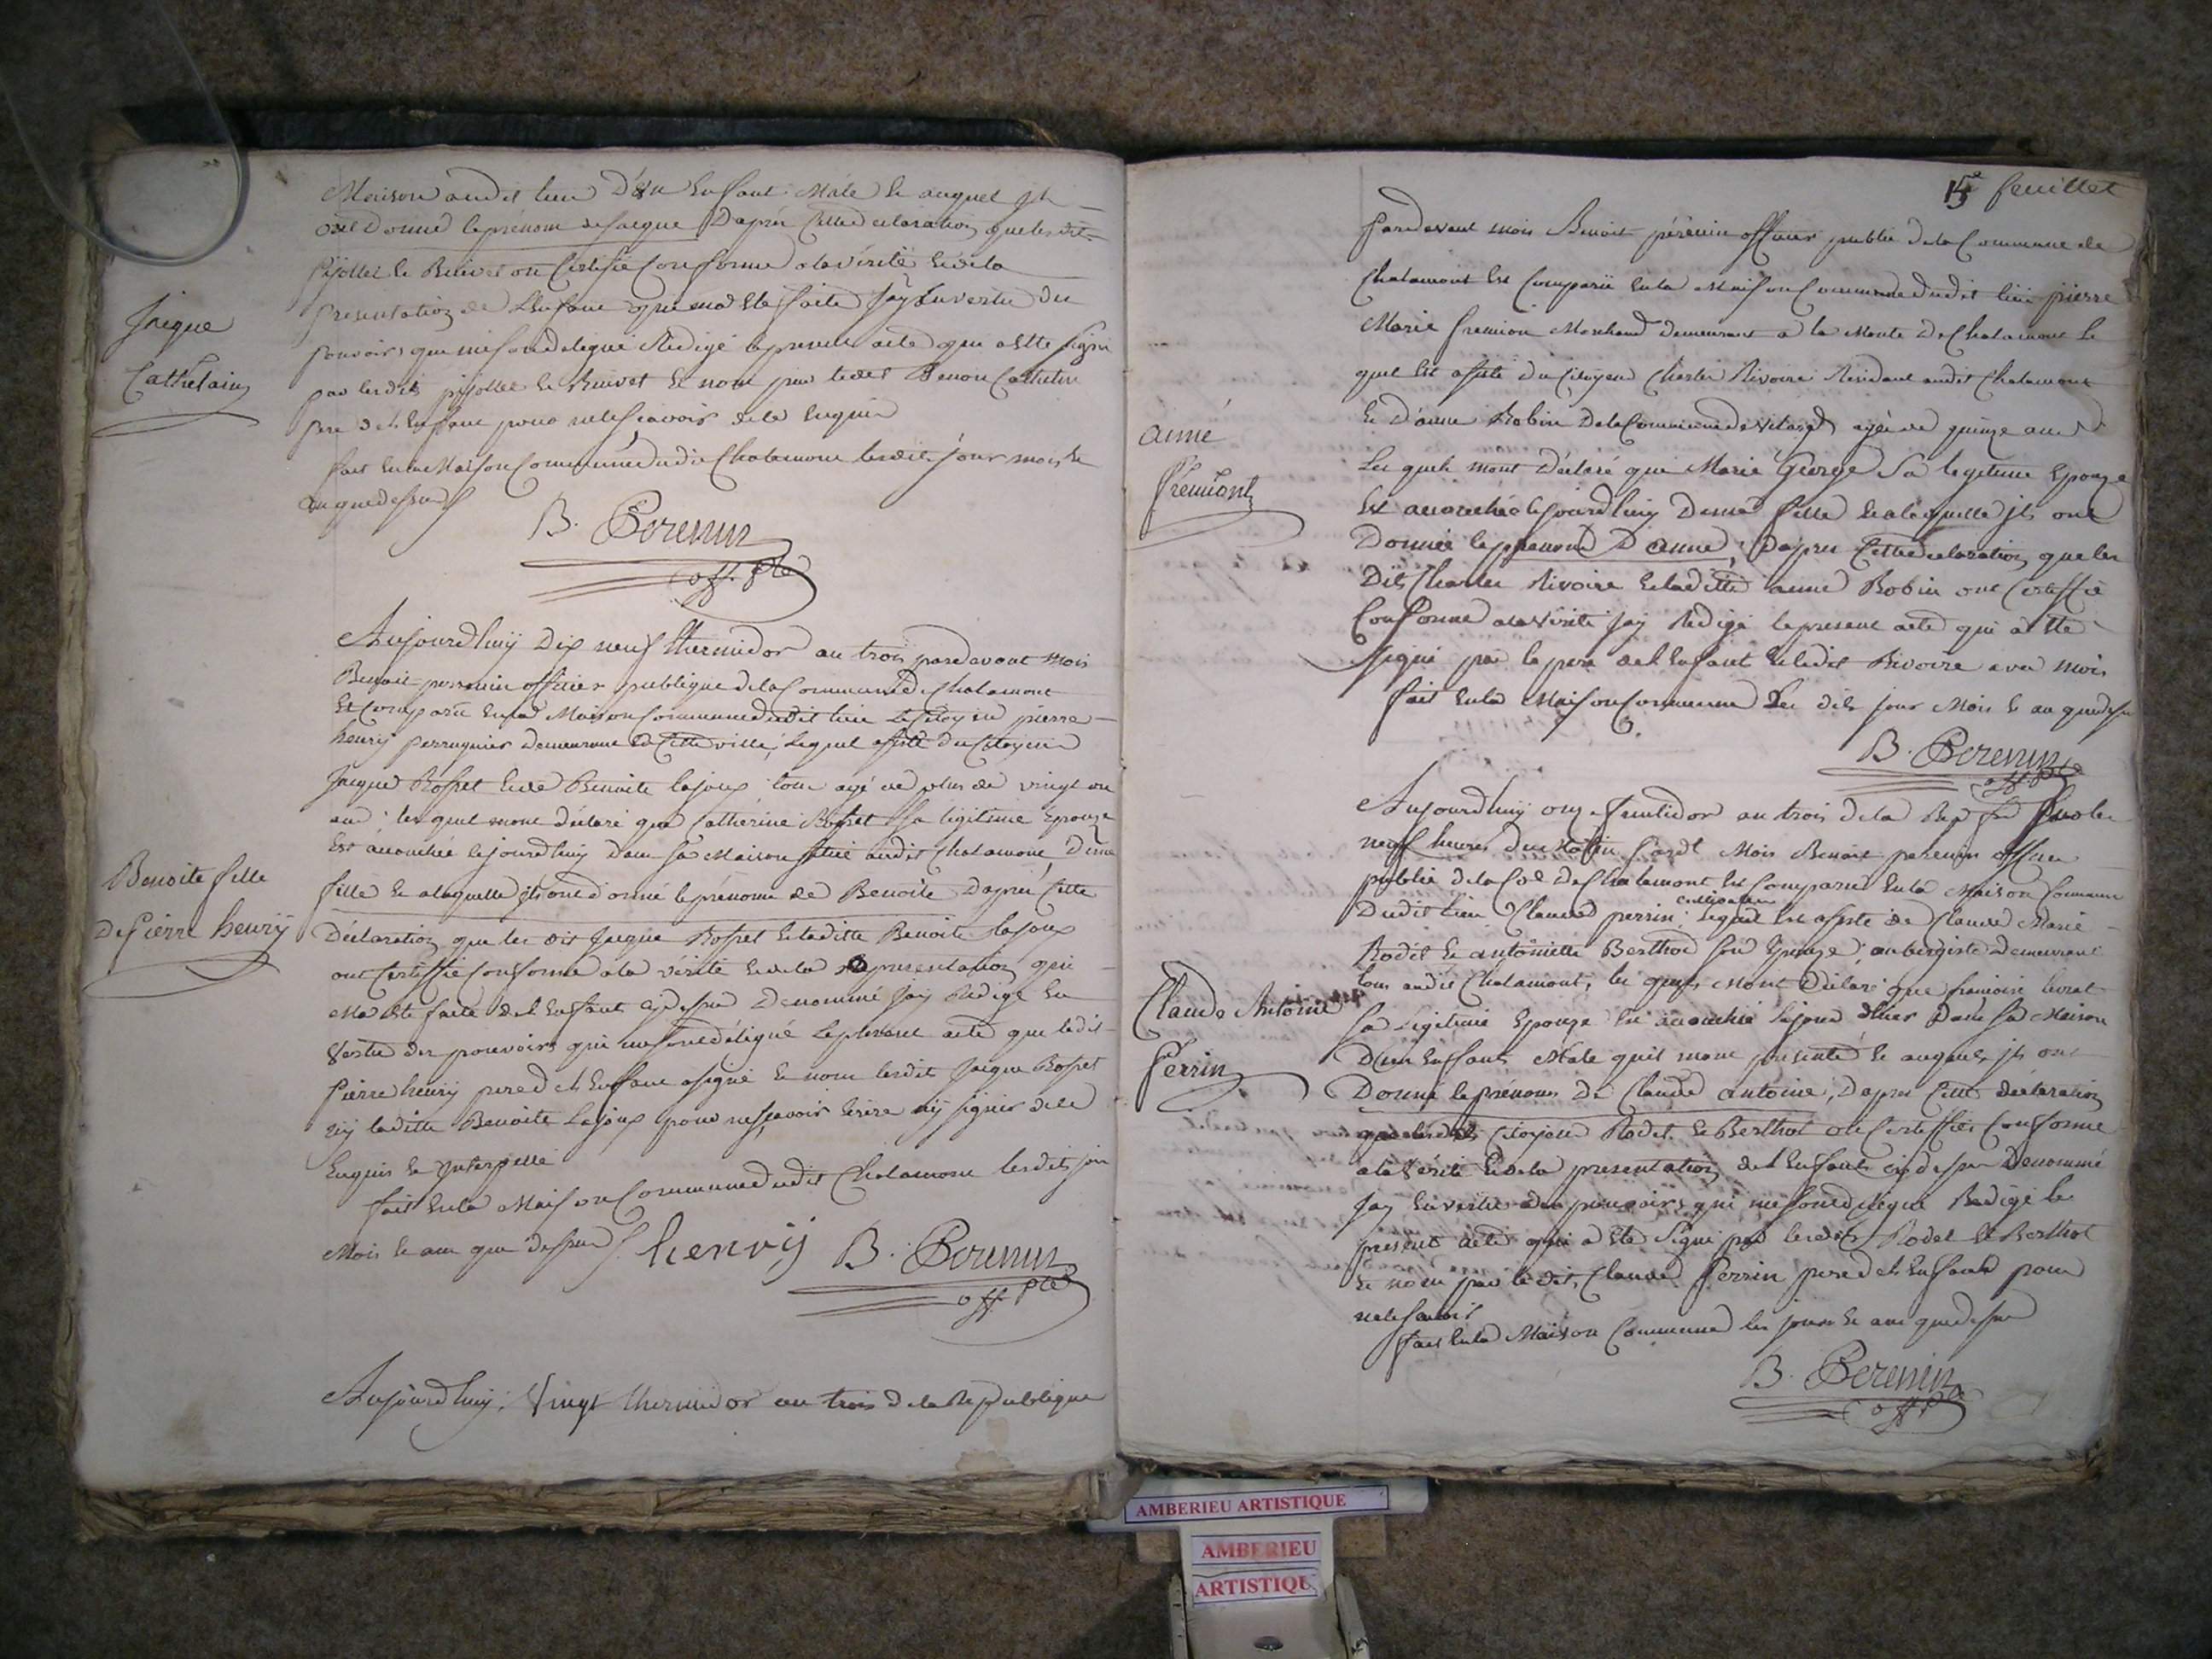 Maison audit lieu D'un Enfant Mâle le auquel jls
ont Donné le prénom de Jacque D'après Cette declaration que lesdit
pijollet le Buivet on Certifié Conforme a la vérité & de la
presentation de L'enfant qui ma Ete faite J'ay En vertu des
pouvoirs qui me son delegué Redigé le present acte qui a Ette signé
par lesdits pijollet le Buivet et non par ledit Benon Cathelin
pere de L'enfant pour ne le sçavoir de ce Enquis
fait En la Maison Commune dudit Chatamont lesdits jour mois &
an que dessus
Jacque
Cathelain
B. Perenin
off. plc
Aujourdhuy Dix neuf thermidor an trois pardevant Mois
Benoit perenin officier publique de la Commune de Chatamont
Est Comparu En la Maison Commune dudit lieu Le Citoyen pierre
henry perruquier Demeurant En Cette ville, Lequel assisté du Citoyen
Jacque Rosset & de Benoite Lajoux tous agé de plus de vingt un
ans; lesquel mont déclaré que Catherine Rosset Sa légitime Epouze
Est accouchée cejourdhuy dans Sa Maison Située audit Chatamont D'une
fille & a laquelle jls ont donné le prénom de Benoite Daprès Cette
Déclaration que les dit Jacque Rosset & la ditte Benoite Lajoux
ont Certiffié Conforme a la vérité & de la Representation qui
Ma Ete faite de L'enfant cy dessus Denommé J'ay Redigé En
Vertu des pouvoirs qui me sont délégué Le present acte que ledit
Pierre henry pere de L'enfant a signé & non lesdits Jacque Rosset
ny laditte Benoite Lajoux pour ne sçavoir Ecrire ny signer de ce
Enquis & Interpellé
fait En la Maison Commune dudit Chatamont lesdits jour
Mois & an que dessus henry B. Perenin
off. plc
Benoite fille
De Pierre henrÿ
Aujourdhuy Vingt thermidor an trois de la Republique
15e feuillet
Pardevant mois Benoit pérenin officier public de la Commune de
Chatamont Est Comparu En la Maison Commune dudit lieu pierre
Marie fremion Marchand demeurant a la Monte De Chatamont le
quel Est assisté du Citoyen Charles Rivoire Résidant audit Chatamont
& D'anne Robin De la Commune de agée de quinze ans
Les quels mont Déclaré que Marie George Sa legitime Epouze
Est accouchée cejourdhuy D'une fille & a laquelle jls ont
Donnée le prenom D'anne, Dapres Cette declaration que les
Dits Charles Rivoire & laditte anne Robin ont Certiffié
Conforme a la Vérité J'ay Redigé le present acte qui a Ette
signé par le pere de L'enfant & ledit Rivoire avec mois
fait En la Maison Commune Les dits jour Mois & an que dessus
B. Perenin
off. plc
anne
fremiont
Aujourdhuy onze fructidor an trois de la Rep fse sur les
neuf heures du Matin pardt Mois Benoit perenin officier
public de la Coe De Chatamont Est Comparu En la Maison Commune
Dudit lieu Claude perrin cultivateur Lequel Est assisté de Claude Marie
Rodet & antoinette Berthod son Epouze, aubergiste Demeurant
tous audit Chatamont, les quels Mont Déclaré que francoise livrat
Sa Legitime Epouze Est accouchée le jour d'hier Dans Sa Maison
D'un Enfant Mâle quil mont présenté & auquel jls ont
Donné le prénoms De Claude antoine, Dapres Cette déclaration
que lesdits Citoyens Rodet & Berthot ont Certiffiés Conforme
a la Vérité & de la presentation de L'enfant cy dessus Denommé
J'ay En vertu des pouvoirs qui me sont délégué Redigé le
present acte qui a Eté Signé par lesdits Rodet & Berthot
& non par le dit Claude Perrin pere de L'enfant pour
ne le sçavoir
fait En la Maison Commune les jours & an que dessus
B. Perenin
off. plc
Claude Antoine
Perrin
AMBERIEU ARTISTIQUE
AMBERIEU
ARTISTIQUE